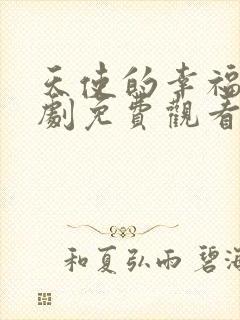 天使的幸福
劇免費觀看
和夏弘雨 碧海